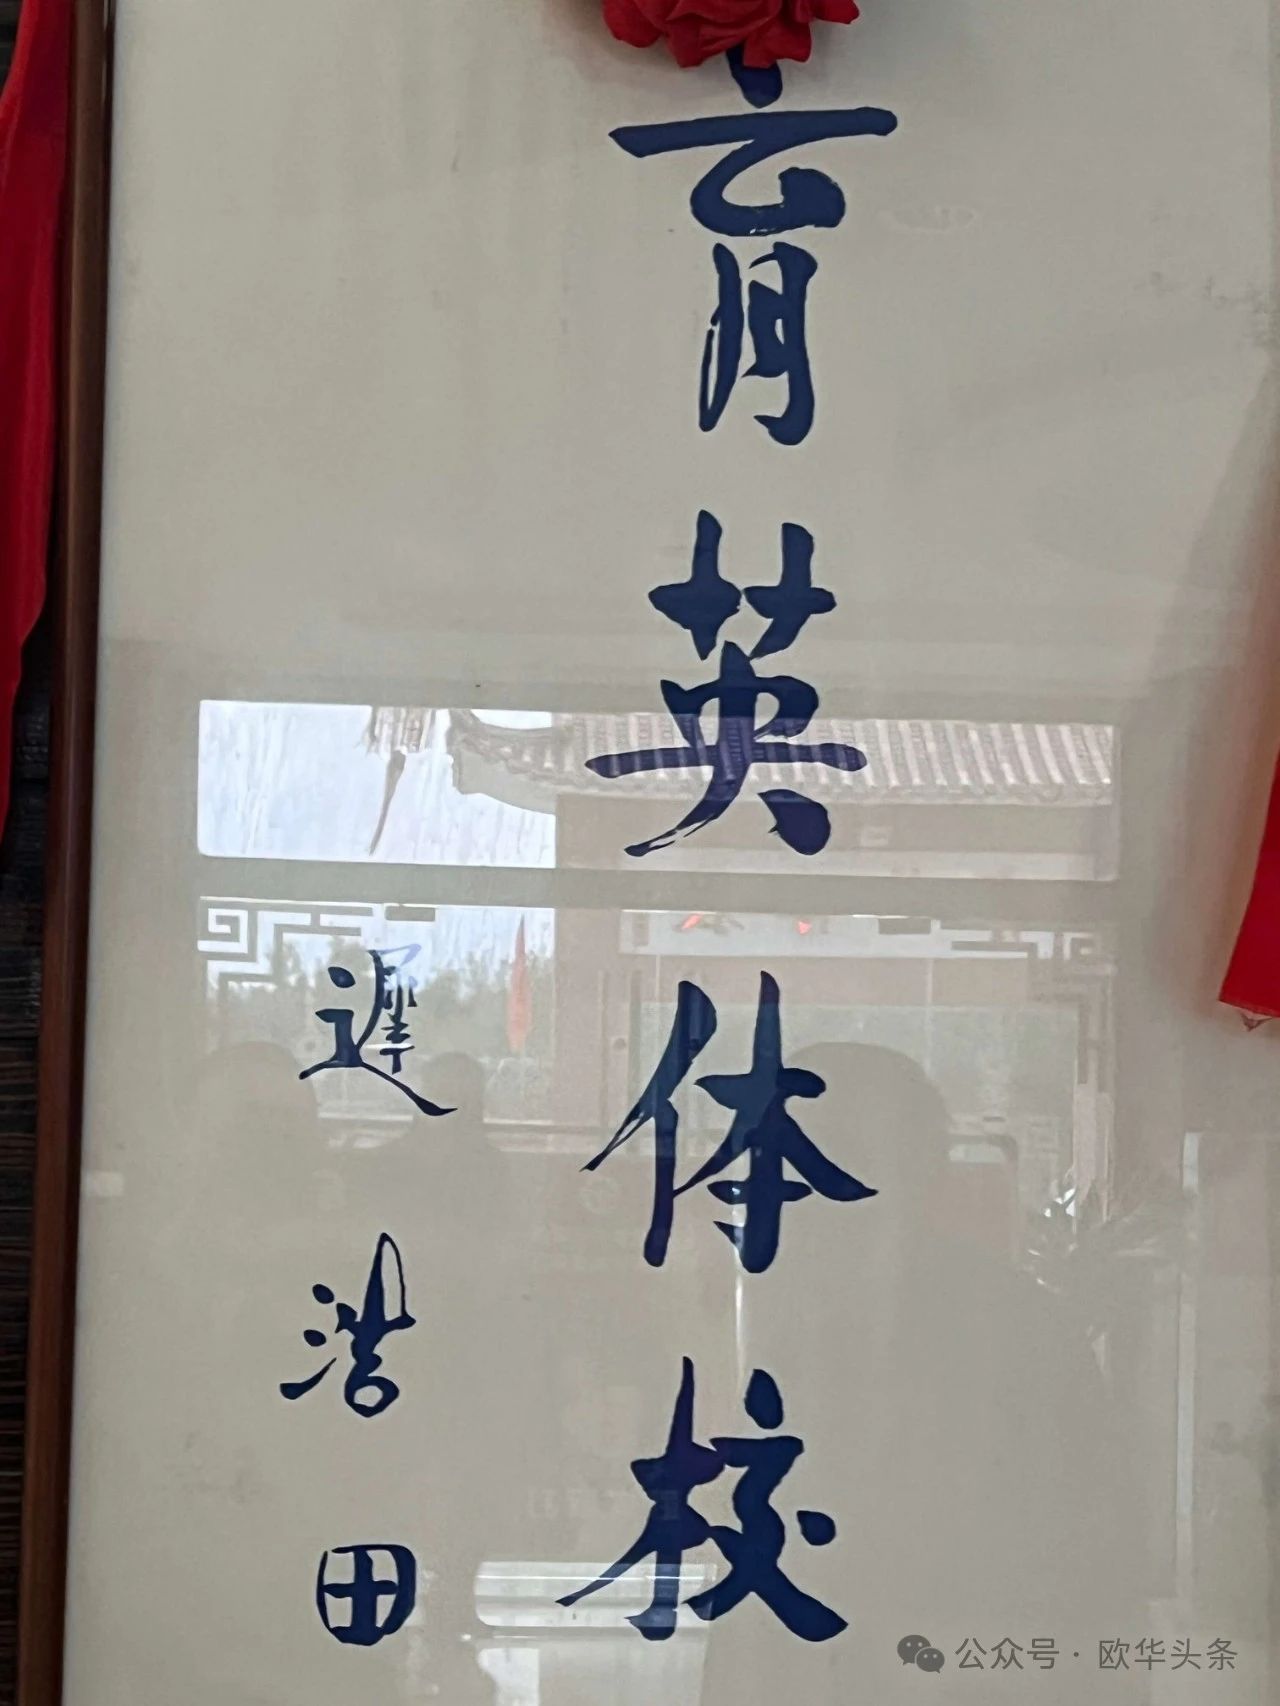 育英体校
遲浩田
公众号·欧华头条